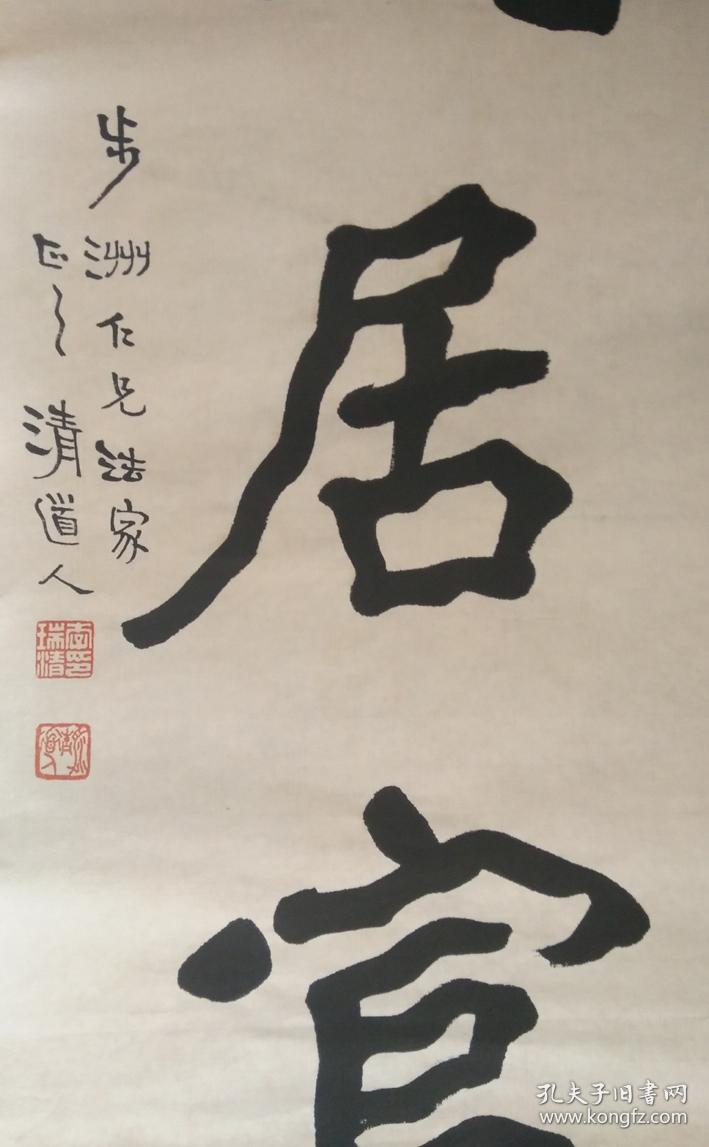 居官
步洲仁兄法家
正之 清道人
李瑞清印
孔夫子旧书网
www.kongfz.com